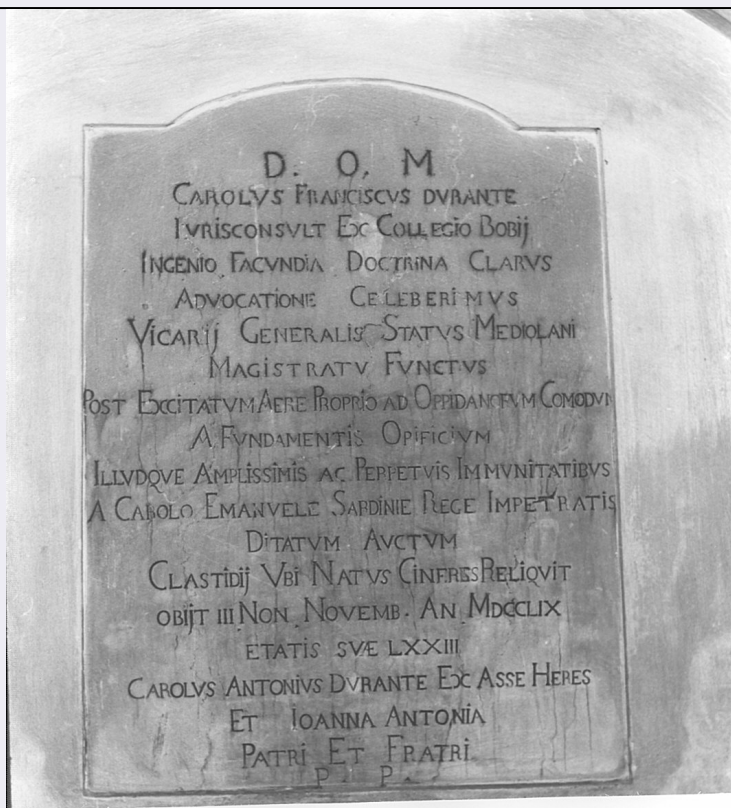 D. O. M
CAROLVS FRANCISCVS DVRANTE
IVRISCONSVLT EX COLLEGIO BOBIJ
INGENIO FACVNDIA DOCTRINA CLARVS
ADVOCATIONE CELEBERIMVS
VICARIJ GENERALIS STATVS MEDIOLANI
MAGISTRATV FVNCTVS
POST EXCITATVM AERE PROPRIO AD OPPIDANORVM COMODVM
A FVNDAMENTIS OPIFICIVM
ILLVDQVE AMPLISSIMIS AC PERPETVIS IMMVNITATIBVS
A CAROLO EMANVELE SARDINIE REGE IMPETRATIS
DITATVM AVCTVM
CLASTIDIJ VBI NATVS CINERES RELIQVIT
OBIJT III NON NOVEMB. AN MDCCLIX
ETATIS SVÆ LXXIII
CAROLVS ANTONIVS DVRANTE EX ASSE HERES
ET IOANNA ANTONIA
PATRI ET FRATRI
P. P.